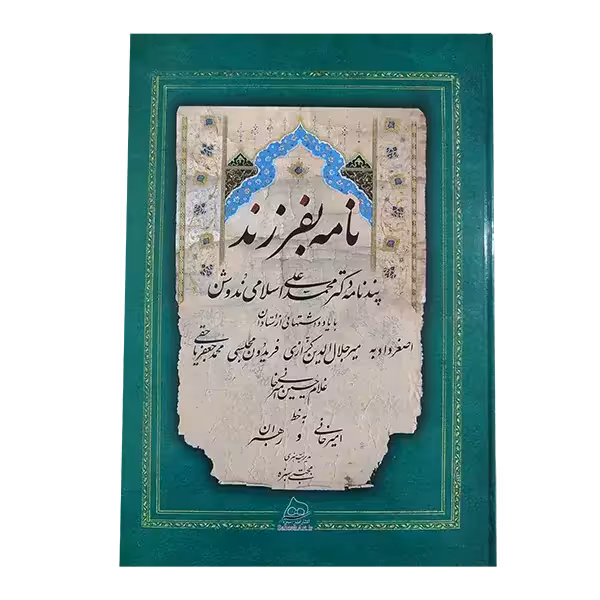 نامه بفرزند
پندنامه دکتر محمد علی اسلامی ندوشن
با یادداشتهای از استادان
اصغر دادبه میر جلال الدین کزازی فریدون مجلسی محمد جعفر یاحقی
غلامحسین امیرخانی
به خط
امیرخانی و رهبران
مدیریت هنری
مجتبی سبزه